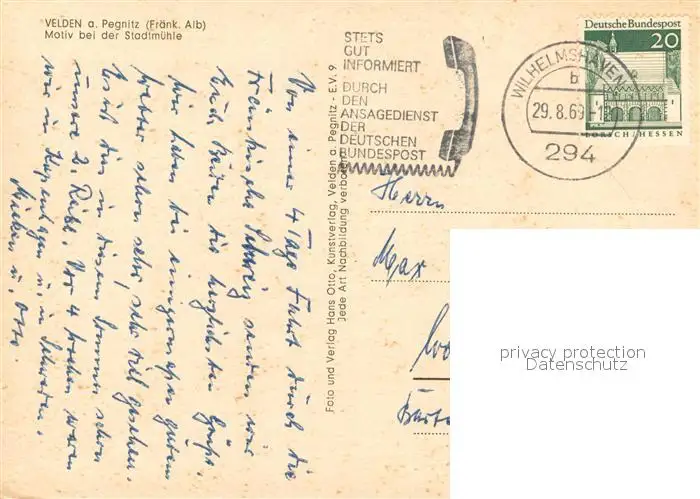 VELDEN a. Pegnitz (Fränk. Alb)
Motiv bei der Stadtmühle
STETS
GUT
INFORMIERT
DURCH
DEN
ANSAGEDIENST
DER
DEUTSCHEN
BUNDESPOST
WILHELMSHAVEN
b
29.8.69-1
294
Deutsche Bundespost
20
LORSCH/HESSEN
Von einer 4 Tage Fahrt durch die
Fränkische Schweiz senden wir
Euch beiden die herzlichsten Grüße.
Wir haben bei einigermaßen gutem
Wetter schon sehr, sehr viel gesehen.
Es ist dies in diesem Sommer schon
unsere 2. Reise. Vor 4 Wochen waren
wir in Kopenhagen u. in Schweden.
u. Otto.
Foto und Verlag Hans Otto, Kunstverlag, Velden a. Pegnitz - E.V. 9
Jede Art Nachbildung verboten
Herrn
Max
privacy protection
Datenschutz